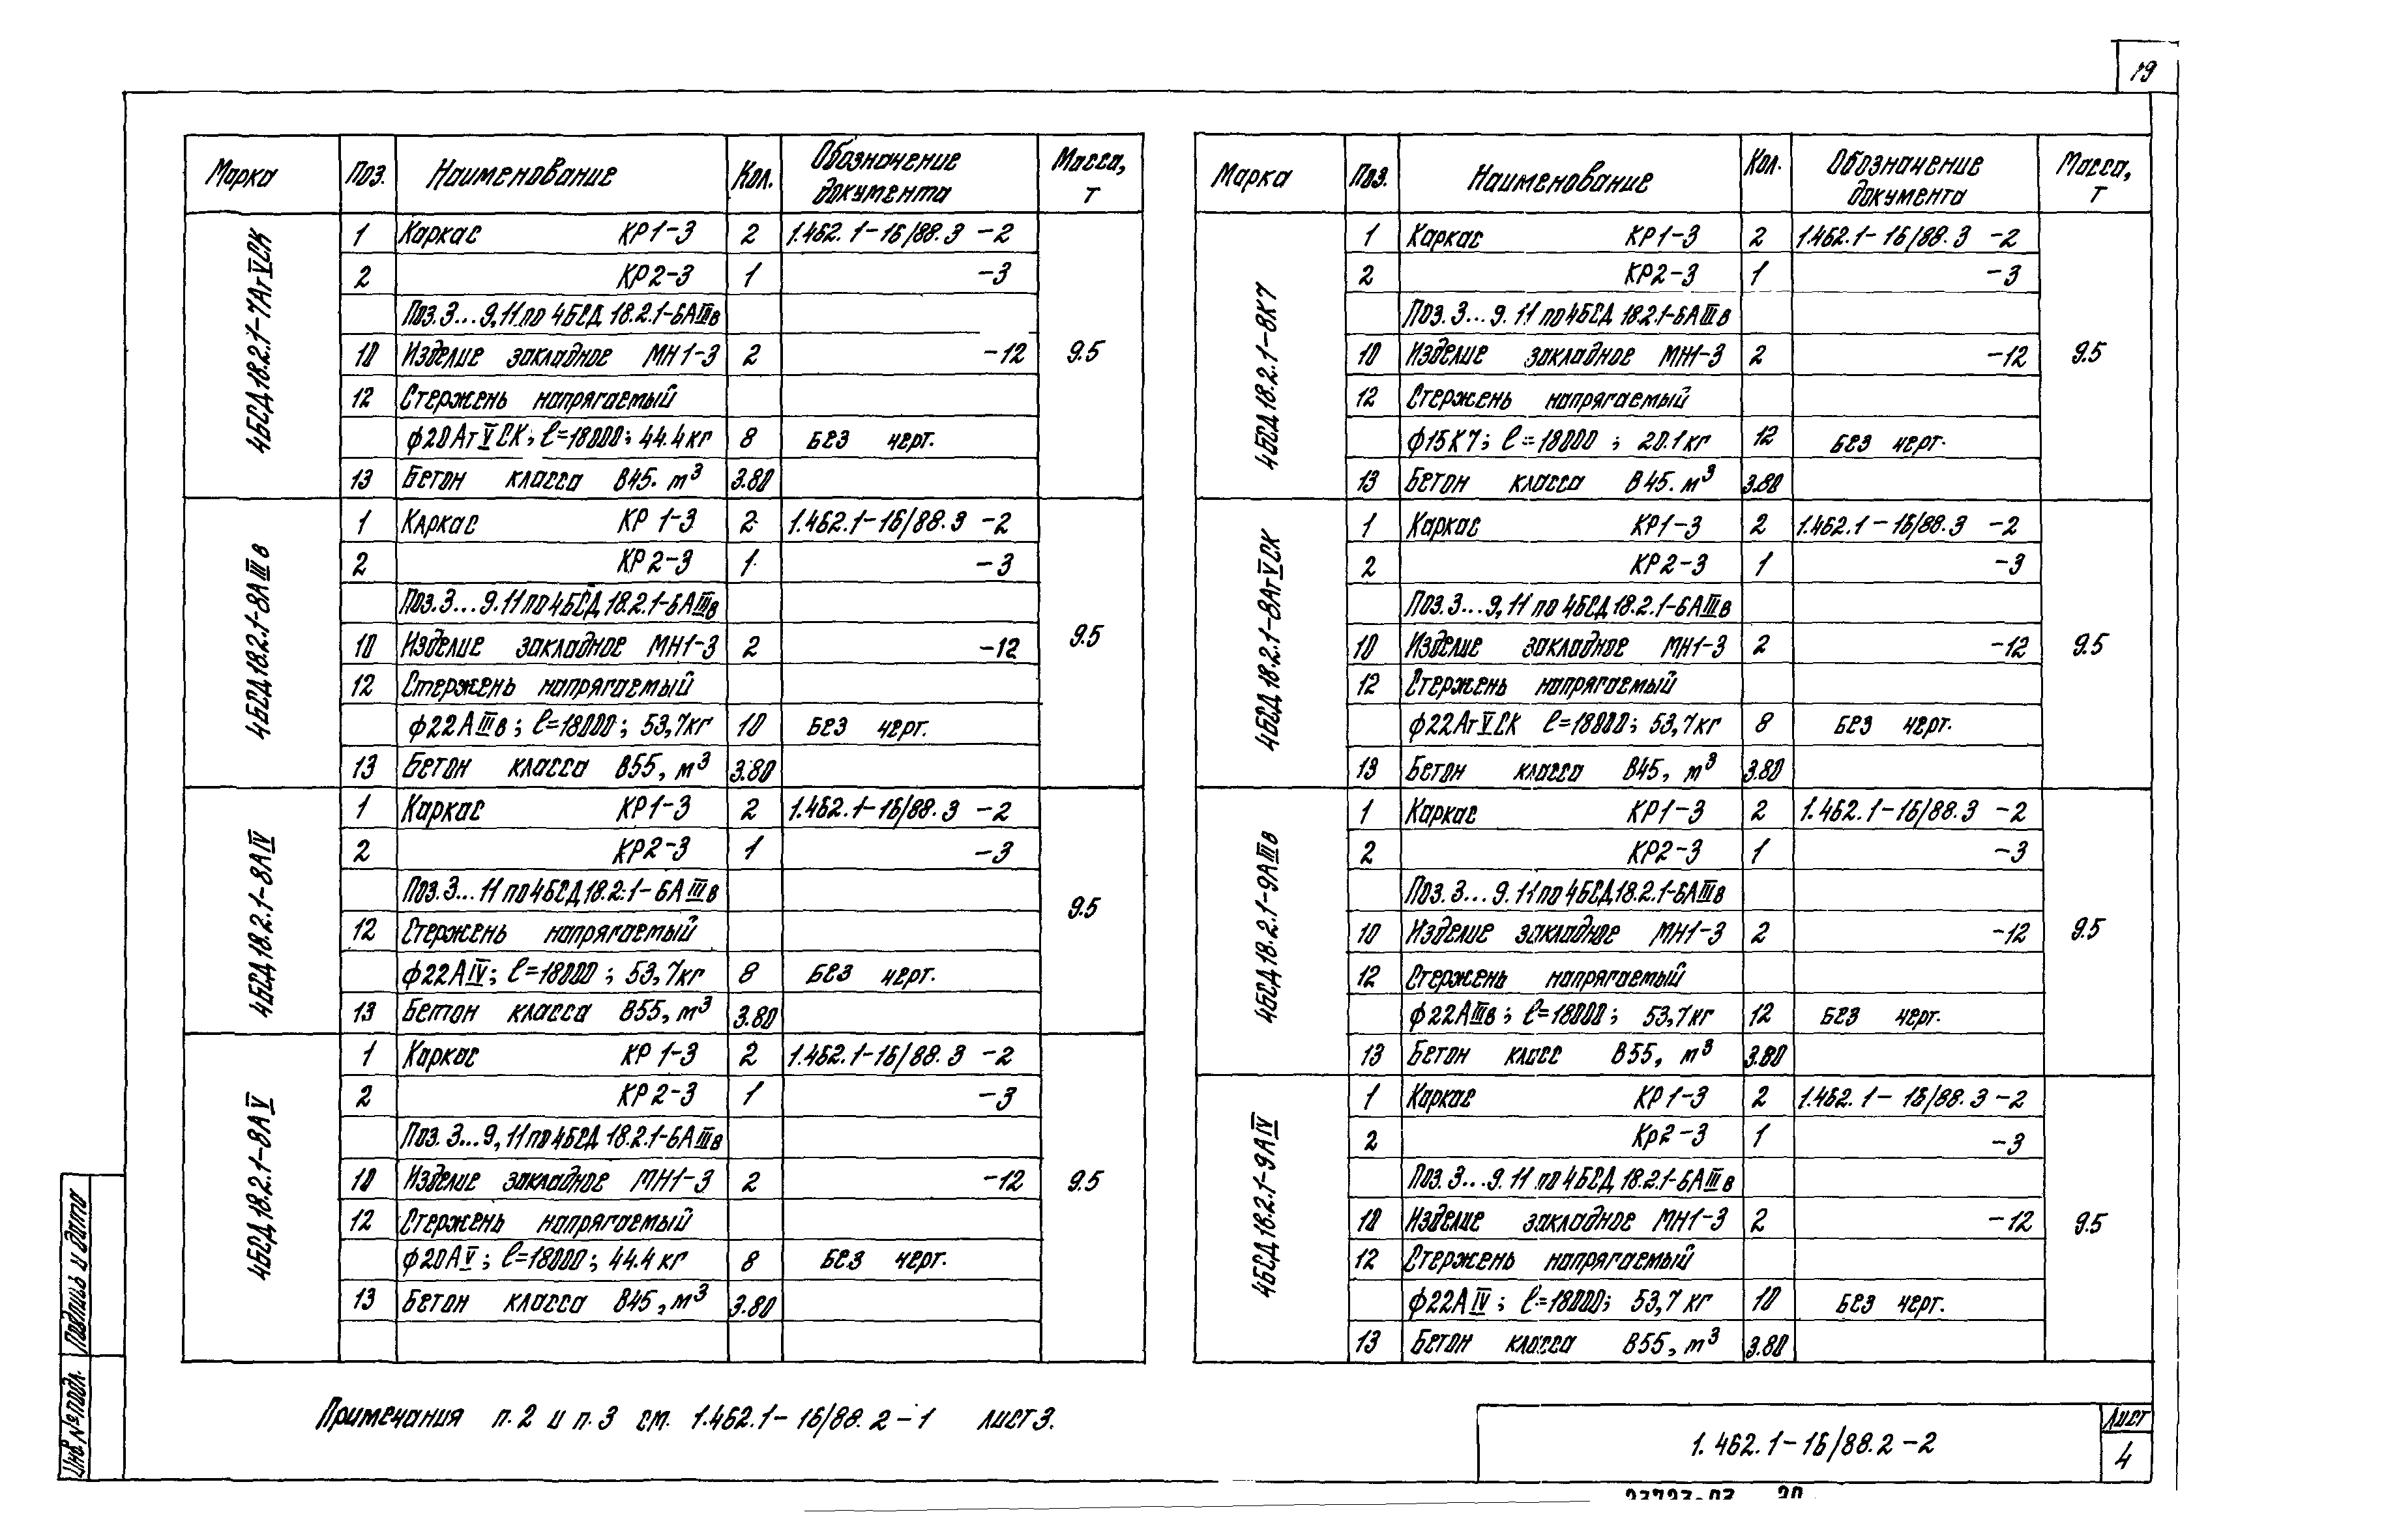 19
Марка Поз. Наименование Кол. Обозначение документа Масса, т
4БСД18.2.1-7АтVСК
1 Каркас КР1-3 2 1.462.1-16/88.3 -2
2 КР2-3 1 -3
Поз.3...9,11 по 4БСД 18.2.1-6АIIIв
10 Изделие закладное МН1-3 2 -12 9.5
12 Стержень напрягаемый
ф20АтVСК; ℓ=18000; 44.4кг 8 без черт.
13 Бетон класса В45. m³ 3.80
4БСД18.2.1-8АIIIв
1 Каркас КР 1-3 2 1.462.1-16/88.3 -2
2 КР2-3 1 -3
Поз.3...9.11 по 4БСД 18.2.1-6АIIIв
10 Изделие закладное МН1-3 2 -12 9.5
12 Стержень напрягаемый
ф22АIIIв; ℓ=18000; 53,7кг 10 без черт.
13 Бетон класса В55, м³ 3.80
4БСД18.2.1-8АIV
1 Каркас КР1-3 2 1.462.1-16/88.3 -2
2 КР2-3 1 -3
Поз.3...11 по 4БСД18.2.1-6АIIIв 9.5
12 Стержень напрягаемый
ф22АIV; ℓ=18000; 53,7кг 8 без черт.
13 Бетон класса В55, м³ 3.80
4БСД18.2.1-8АV
1 Каркас КР 1-3 2 1.462.1-16/88.3 -2
2 КР2-3 1 -3
Поз.3...9,11 по 4БСД 18.2.1-6АIIIв
10 Изделие закладное МН1-3 2 -12 9.5
12 Стержень напрягаемый
ф20АV; ℓ=18000; 44.4кг 8 без черт.
13 Бетон класса В45, м³ 3.80
Марка Поз. Наименование Кол. Обозначение документа Масса, т
4БСД18.2.1-8К7
1 Каркас КР1-3 2 1.462.1-16/88.3 -2
2 КР2-3 1 -3
Поз.3...9.11 по 4БСД 18.2.1-6АIIIв
10 Изделие закладное МН1-3 2 -12 9.5
12 Стержень напрягаемый
ф15К7; ℓ=18000; 20.1кг 12 без черт.
13 Бетон класса В45. м³ 3.80
4БСД18.2.1-8АтVСК
1 Каркас КР1-3 2 1.462.1-16/88.3 -2
2 КР2-3 1 -3
Поз.3...9,11 по 4БСД18.2.1-6АIIIв
10 Изделие закладное МН1-3 2 -12 9.5
12 Стержень напрягаемый
ф22АтVСК ℓ=18000; 53,7кг 8 без черт.
13 Бетон класса В45, m³ 3.80
4БСД18.2.1-9АIIIв
1 Каркас КР1-3 2 1.462.1-16/88.3 -2
2 КР2-3 1 -3
Поз.3...9.11 по 4БСД18.2.1-6АIIIв
10 Изделие закладное МН1-3 2 -12 9.5
12 Стержень напрягаемый
ф22АIIIв; ℓ=18000; 53,7кг 12 без черт.
13 Бетон класс В55, м³ 3.80
4БСД18.2.1-9АIV
1 Каркас КР1-3 2 1.462.1-16/88.3 -2
2 Кр2-3 1 -3
Поз.3...9.11 по 4БСД 18.2.1-6АIIIв
10 Изделие закладное МН1-3 2 -12 9.5
12 Стержень напрягаемый
ф22АIV; ℓ=18000; 53,7кг 10 без черт.
13 Бетон класса В55, м³ 3.80
Примечания п.2 и п.3 см. 1.462.1-16/88.2-1 лист3.
1.462.1-16/88.2-2
Лист
4
Инв.№подл. Подпись и дата